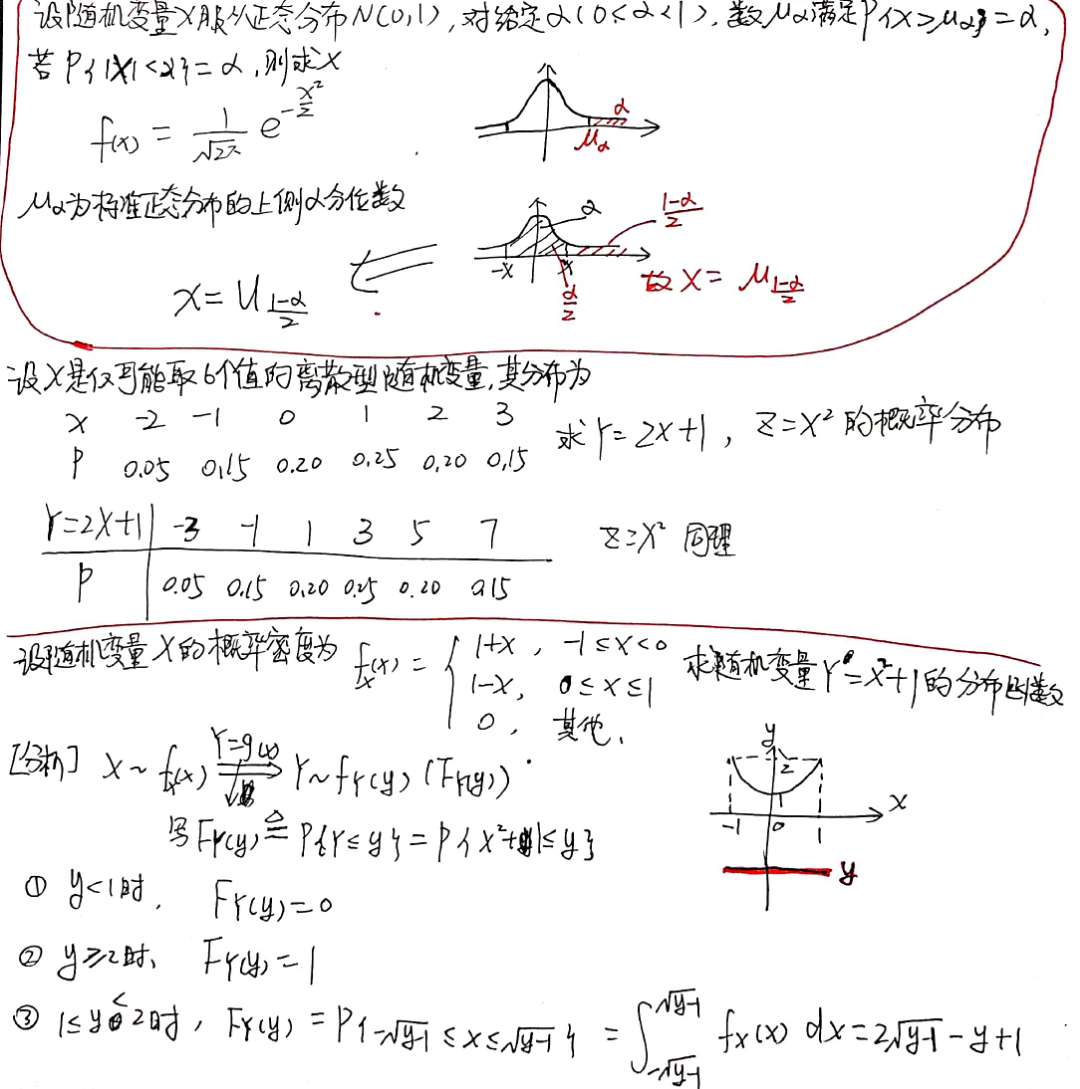 设随机变量X服从正态分布N(0,1), 对给定α(0<α<1), 数μα满足P{X>μα}=α,
若P{|X|<x}=α, 则求x
f(x) = 1/√2π e^(-x²/2)
α
μα
μα为标准正态分布的上侧α分位数
α
(1-α)/2
-x x
α/2
故x = μ_(1-α)/2
x = U_(1-α)/2
设X是仅可能取6个值的离散型随机变量, 其分布为
X -2 -1 0 1 2 3
P 0.05 0.15 0.20 0.25 0.20 0.15
求Y=2X+1, Z=X²的概率分布
Y=2X+1 -3 -1 1 3 5 7
P 0.05 0.15 0.20 0.25 0.20 0.15
Z=X² 同理
设随机变量X的概率密度为 f_X(x) = { 1+x, -1≤x<0
1-x, 0≤x≤1
0, 其他.
求随机变量Y=X²+1的分布函数
[分析] X~f_X(x) Y=g(x) ⇒ Y~f_Y(y) (F_Y(y))
y
2
-1 0 1 x
y
写F_Y(y) ≜ P{Y≤y} = P{X²+1≤y}
① y<1时, F_Y(y)=0
② y≥2时, F_Y(y)=1
③ 1≤y<2时, F_Y(y) = P{-√y-1 ≤ X ≤ √y-1} = ∫_(-√y-1)^(√y-1) f_X(x) dx = 2√y-1 - y+1